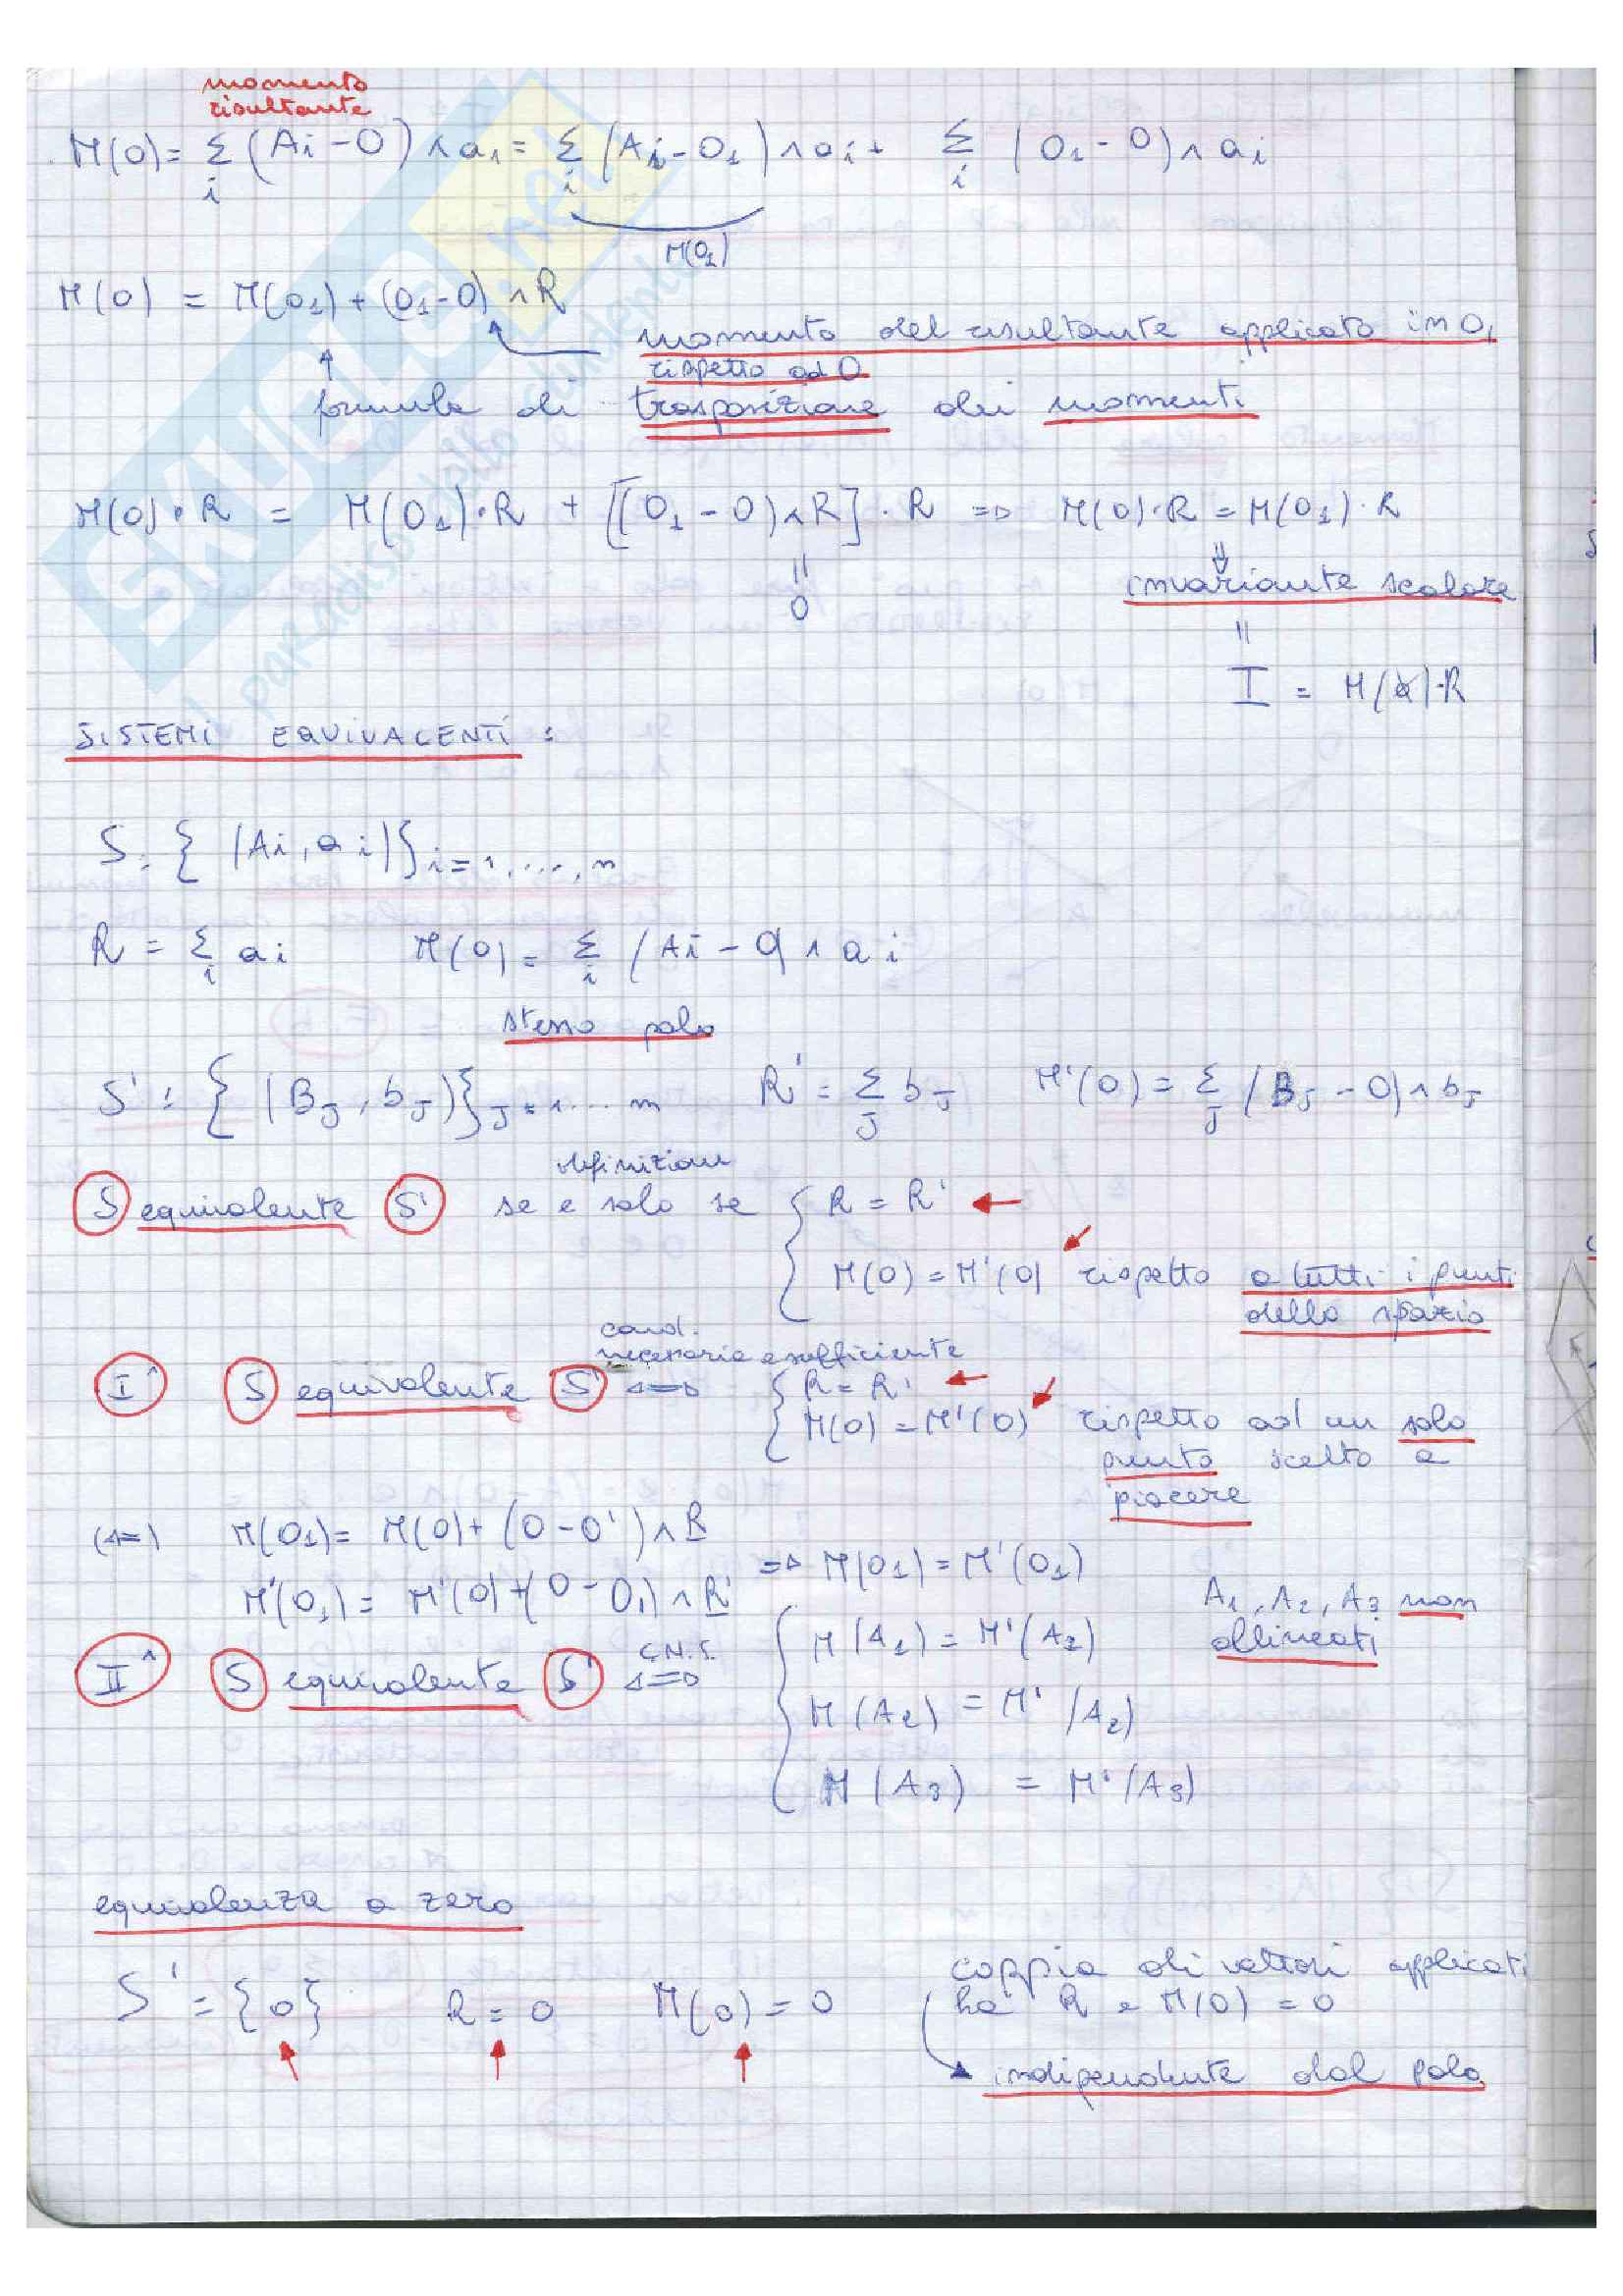 momento
risultante
M(O) = Σ_i (Ai - O) ∧ a1 = Σ_i (Ai - O1) ∧ ai + Σ_i (O1 - O) ∧ ai
M(O1)
M(O) = M(O1) + (O1 - O) ∧ R
momento del risultante applicato in O1
rispetto ad O
formula di trasposizione dei momenti
M(O) · R = M(O1) · R + [(O1 - O) ∧ R] · R => M(O) · R = M(O1) · R
=
0
invariante scalare
=
I = M( ) · R
SISTEMI EQUIVALENTI :
S : { (Ai, ai) } i = 1, ...., n
R = Σ_i ai M(O) = Σ_i (Ai - O) ∧ ai
stesso polo
S' : { (BJ, bJ) } J = 1 .... m R' = Σ_J bJ M'(O) = Σ_J (BJ - O) ∧ bJ
definizione
S equivalente S' se e solo se { R = R'
M(O) = M'(O) rispetto a tutti i punti
dello spazio
cond.
necessaria e sufficiente
I^ S equivalente S' <=> { R = R'
M(O) = M'(O) rispetto ad un solo
punto scelto a
piacere
(<=) M(O1) = M(O) + (O - O') ∧ R
=> M(O1) = M'(O1)
M'(O1) = M'(O) + (O - O1) ∧ R'
A1, A2, A3 non
allineati
C.N.S.
II^ S equivalente S' <=> { M(A1) = M'(A1)
M(A2) = M'(A2)
M(A3) = M'(A3)
equivalenza a zero
S' = {0} R = 0 M(O) = 0
coppia di vettori applicati
ha R e M(O) = 0
indipendente dal polo
SKUOLA.net
il paradiso dello studente